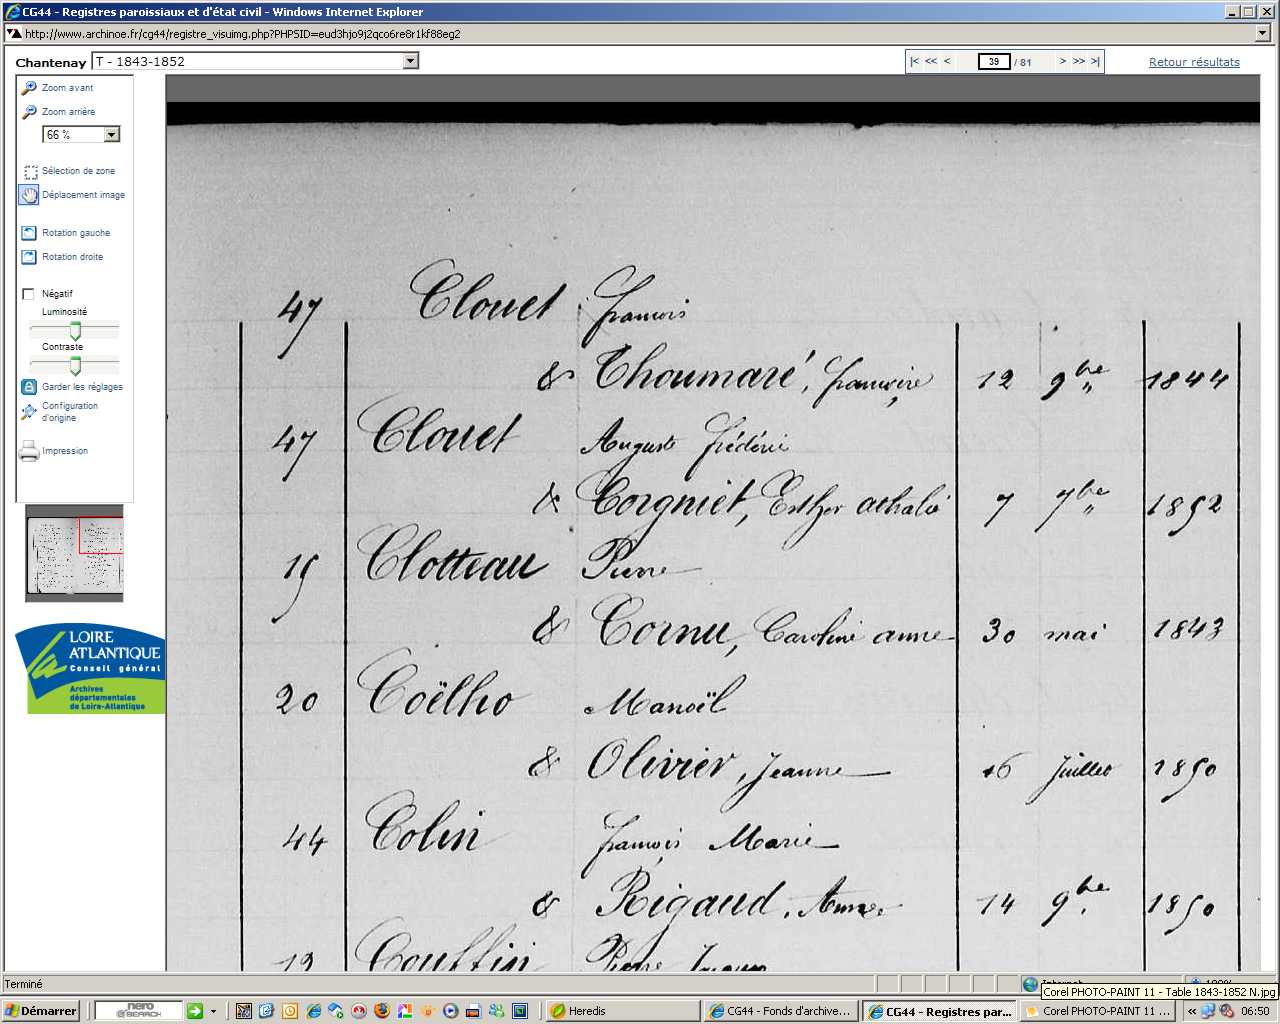 CG44 - Registres paroissiaux et d'état civil - Windows Internet Explorer
http://www.archinoe.fr/cg44/registre_visuimg.php?PHPSID=eud3hjo9j2qco6re8r1kf88eg2
Chantenay T - 1843-1852
|< << < 39 / 81 > >> >|
Retour résultats
Zoom avant
Zoom arrière
66 %
Sélection de zone
Déplacement image
Rotation gauche
Rotation droite
Négatif
Luminosité
Contraste
Garder les réglages
Configuration
d'origine
Impression
LOIRE
ATLANTIQUE
Conseil général
Archives
départementales
de Loire-Atlantique
47 Clouet françois
& Thoumaré, françoise 12 9bre 1844
47 Clouet Auguste frédéric
& Corgniet, Esther athalie 7 7bre 1852
15 Clotteau Pierre
& Cornu, Caroline anne 30 mai 1843
20 Coëlho Manoël
& Olivier, Jeanne 16 juillet 1850
44 Colin françois Marie
& Rigaud, Anne 14 9bre 1850
Pierre
Terminé
Corel PHOTO-PAINT 11 - Table 1843-1852 N.jpg
Démarrer
nero
SEARCH
Heredis
CG44 - Fonds d'archive...
CG44 - Registres par...
Corel PHOTO-PAINT 11 ...
« 06:50